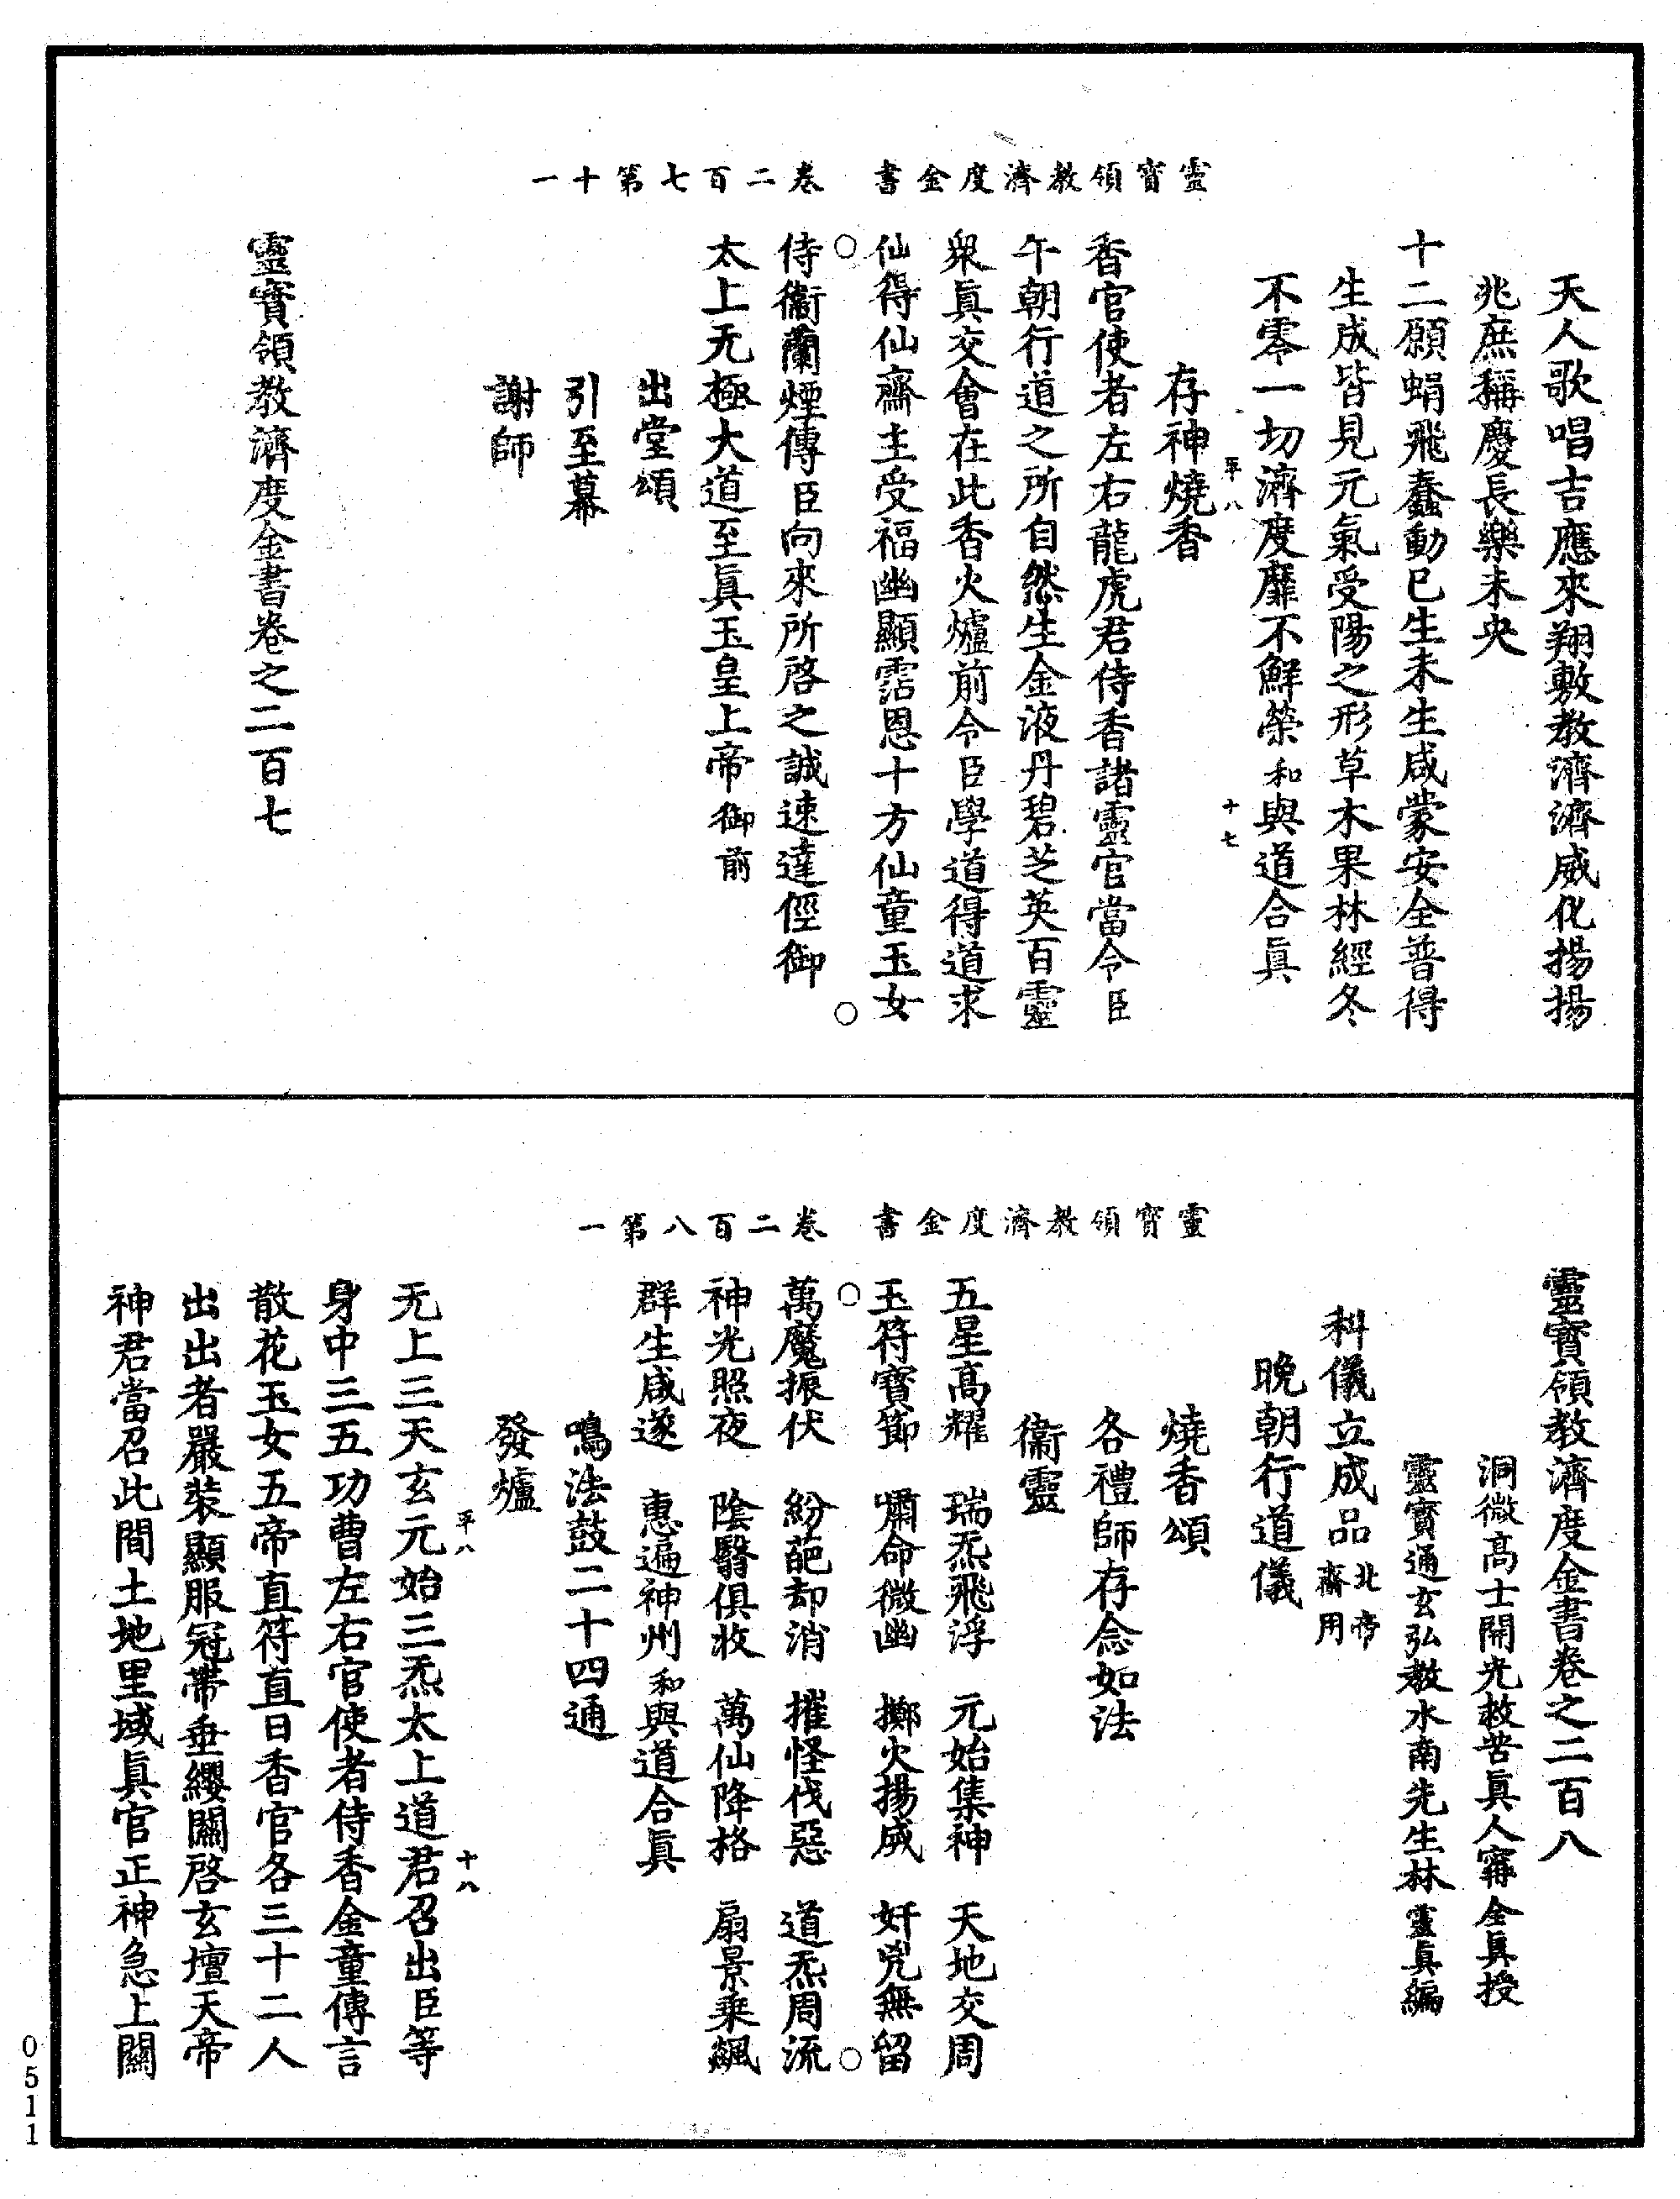 靈寶領教濟度金書　卷二百七第十一
天人歌唱吉應來翔敷教濟濟威化揚揚
兆庶稱慶長樂未央
十二願蜎飛蠢動已生未生咸蒙安全普得
生成皆見元氣受陽之形草木果林經冬
不零一切濟度靡不鮮榮和與道合眞
平八　十七
存神燒香
香官使者左右龍虎君侍香諸靈官當令臣
午朝行道之所自然生金液丹碧芝英百靈
衆眞交會在此香火爐前令臣學道得道求
仙得仙齋主受福幽顯霑恩十方仙童玉女
侍衞蘭煙傳臣向來所啓之誠速達徑御
太上无極大道至眞玉皇上帝御前
出堂頌
引至幕
謝師
靈寶領教濟度金書卷之二百七
靈寶領教濟度金書　卷二百八第一
靈寶領教濟度金書卷之二百八
洞微高士開光救苦眞人甯全眞授
靈寶通玄弘教水南先生林靈眞編
科儀立成品北帝齋用
晚朝行道儀
燒香頌
各禮師存念如法
衞靈
五星高耀　瑞炁飛浮　元始集神　天地交周
玉符寶節　嘯命微幽　擲火揚威　奸兇無留
萬魔振伏　紛葩却消　摧怪伐惡　道炁周流
神光照夜　陰翳俱收　萬仙降格　扇景乘飆
群生咸遂　惠遍神州和與道合眞
鳴法鼓二十四通
發爐
平八　十八
无上三天玄元始三炁太上道君召出臣等
身中三五功曹左右官使者侍香金童傳言
散花玉女五帝直符直日香官各三十二人
出出者嚴裝顯服冠帶垂纓關啓玄壇天帝
神君當召此間土地里域眞官正神急上關
0511